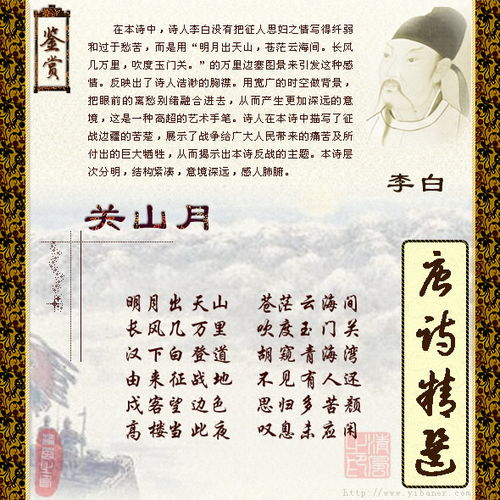 鉴赏
在本诗中，诗人李白没有把征人思妇之情写得纤弱
和过于愁苦，而是用“明月出天山，苍茫云海间。长风
几万里，吹度玉门关。”的万里边塞图景来引发这种感
情。反映出了诗人浩渺的胸襟。用宽广的时空做背景，
把眼前的离愁别绪融合进去，从而产生更加深远的意
境，这是一种高超的艺术手笔。诗人在本诗中描写了征
战边疆的苦楚，展示了战争给广大人民带来的痛苦及所
付出的巨大牺牲，从而揭示出本诗反战的主题。本诗层
次分明，结构紧凑，意境深远，感人肺腑。
李白
关山月
明月出天山 苍茫云海间
长风几万里 吹度玉门关
汉下白登道 胡窥青海湾
由来征战地 不见有人还
戍客望边色 思归多苦颜
高楼当此夜 叹息未应闲
唐诗精选
http://www.yibaner.com